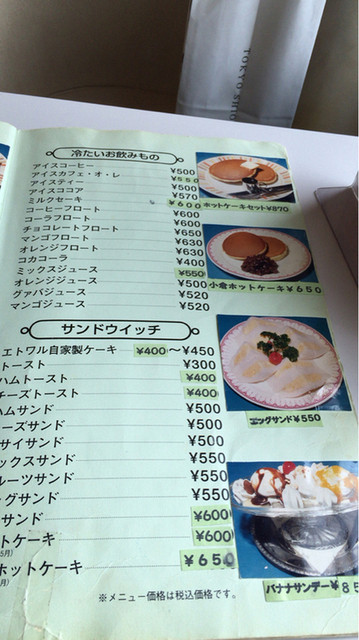 TOKYO SHO
冷たいお飲みもの
アイスコーヒー ¥500
アイスカフェ・オ・レ ¥550
アイスティー ¥500
アイスココア ¥570
ミルクセーキ ¥600
コーヒーフロート ¥600
コーラフロート ¥600
チョコレートフロート ¥650
マンゴフロート ¥630
オレンジフロート ¥630
コカコーラ ¥400
ミックスジュース ¥550
オレンジジュース ¥500
グァバジュース ¥520
マンゴジュース ¥520
サンドウイッチ
エトワル自家製ケーキ ¥400〜¥450
トースト ¥300
ハムトースト ¥400
チーズトースト ¥400
ハムサンド ¥500
ーズサンド ¥500
サイサンド ¥500
ックスサンド ¥550
ルーツサンド ¥550
ッグサンド ¥550
サンド ¥600
トケーキ ¥600
5月)
ホットケーキ ¥650
月)
※メニュー価格は税込価格です。
ホットケーキセット¥870
小倉ホットケーキ¥650
エッグサンド¥550
バナナサンデー¥85